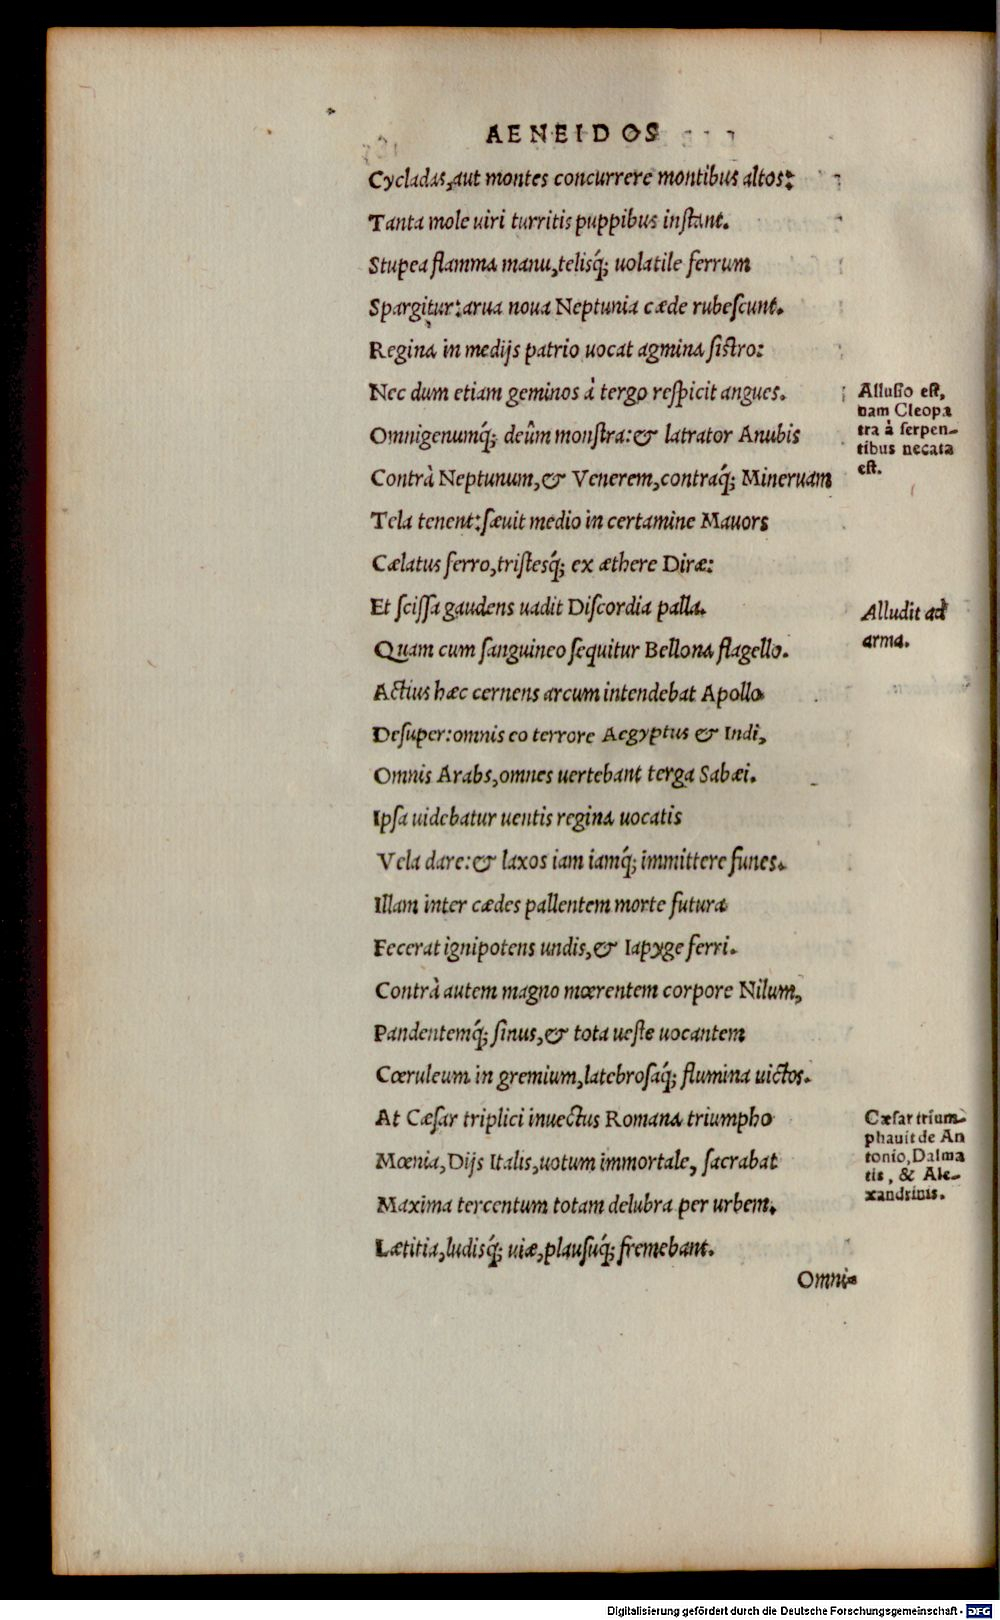 AENEIDOS
Cycladas, aut montes concurrere montibus altos:
Tanta mole uiri turritis puppibus inſtant.
Stupea flamma manu, telisq́; uolatile ferrum
Spargitur: arua noua Neptunia cæde rubeſcunt.
Regina in medijs patrio uocat agmina ſiſtro:
Nec dum etiam geminos à tergo reſpicit angues.
Alluſio eſt,
nam Cleopa
tra à ſerpen-
tibus necata
eſt.
Omnigenumq́; deûm monſtra: & latrator Anubis
Contrà Neptunum, & Venerem, contraq́; Mineruam
Tela tenent: ſæuit medio in certamine Mauors
Cælatus ferro, triſtesq́; ex æthere Diræ:
Et ſciſſa gaudens uadit Diſcordia palla.
Alludit ad
arma.
Quam cum ſanguineo ſequitur Bellona flagello.
Actius hæc cernens arcum intendebat Apollo
Deſuper: omnis eo terrore Aegyptus & Indi,
Omnis Arabs, omnes uertebant terga Sabæi.
Ipſa uidebatur uentis regina uocatis
Vela dare: & laxos iam iamq́; immittere funes.
Illam inter cædes pallentem morte futura
Fecerat ignipotens undis, & Iapyge ferri.
Contrà autem magno mœrentem corpore Nilum,
Pandentemq́; ſinus, & tota ueſte uocantem
Cœruleum in gremium, latebroſaq́; flumina uictos.
At Cæſar triplici inuectus Romana triumpho
Cæſar trium-
phauit de An
tonio, Dalma
tis, & Ale-
xandrinis.
Mœnia, Dijs Italis, uotum immortale, ſacrabat
Maxima tercentum totam delubra per urbem.
Lætitia, ludisq́; uiæ, plauſuq́; fremebant.
Omni-
Digitalisierung gefördert durch die Deutsche Forschungsgemeinschaft - DFG